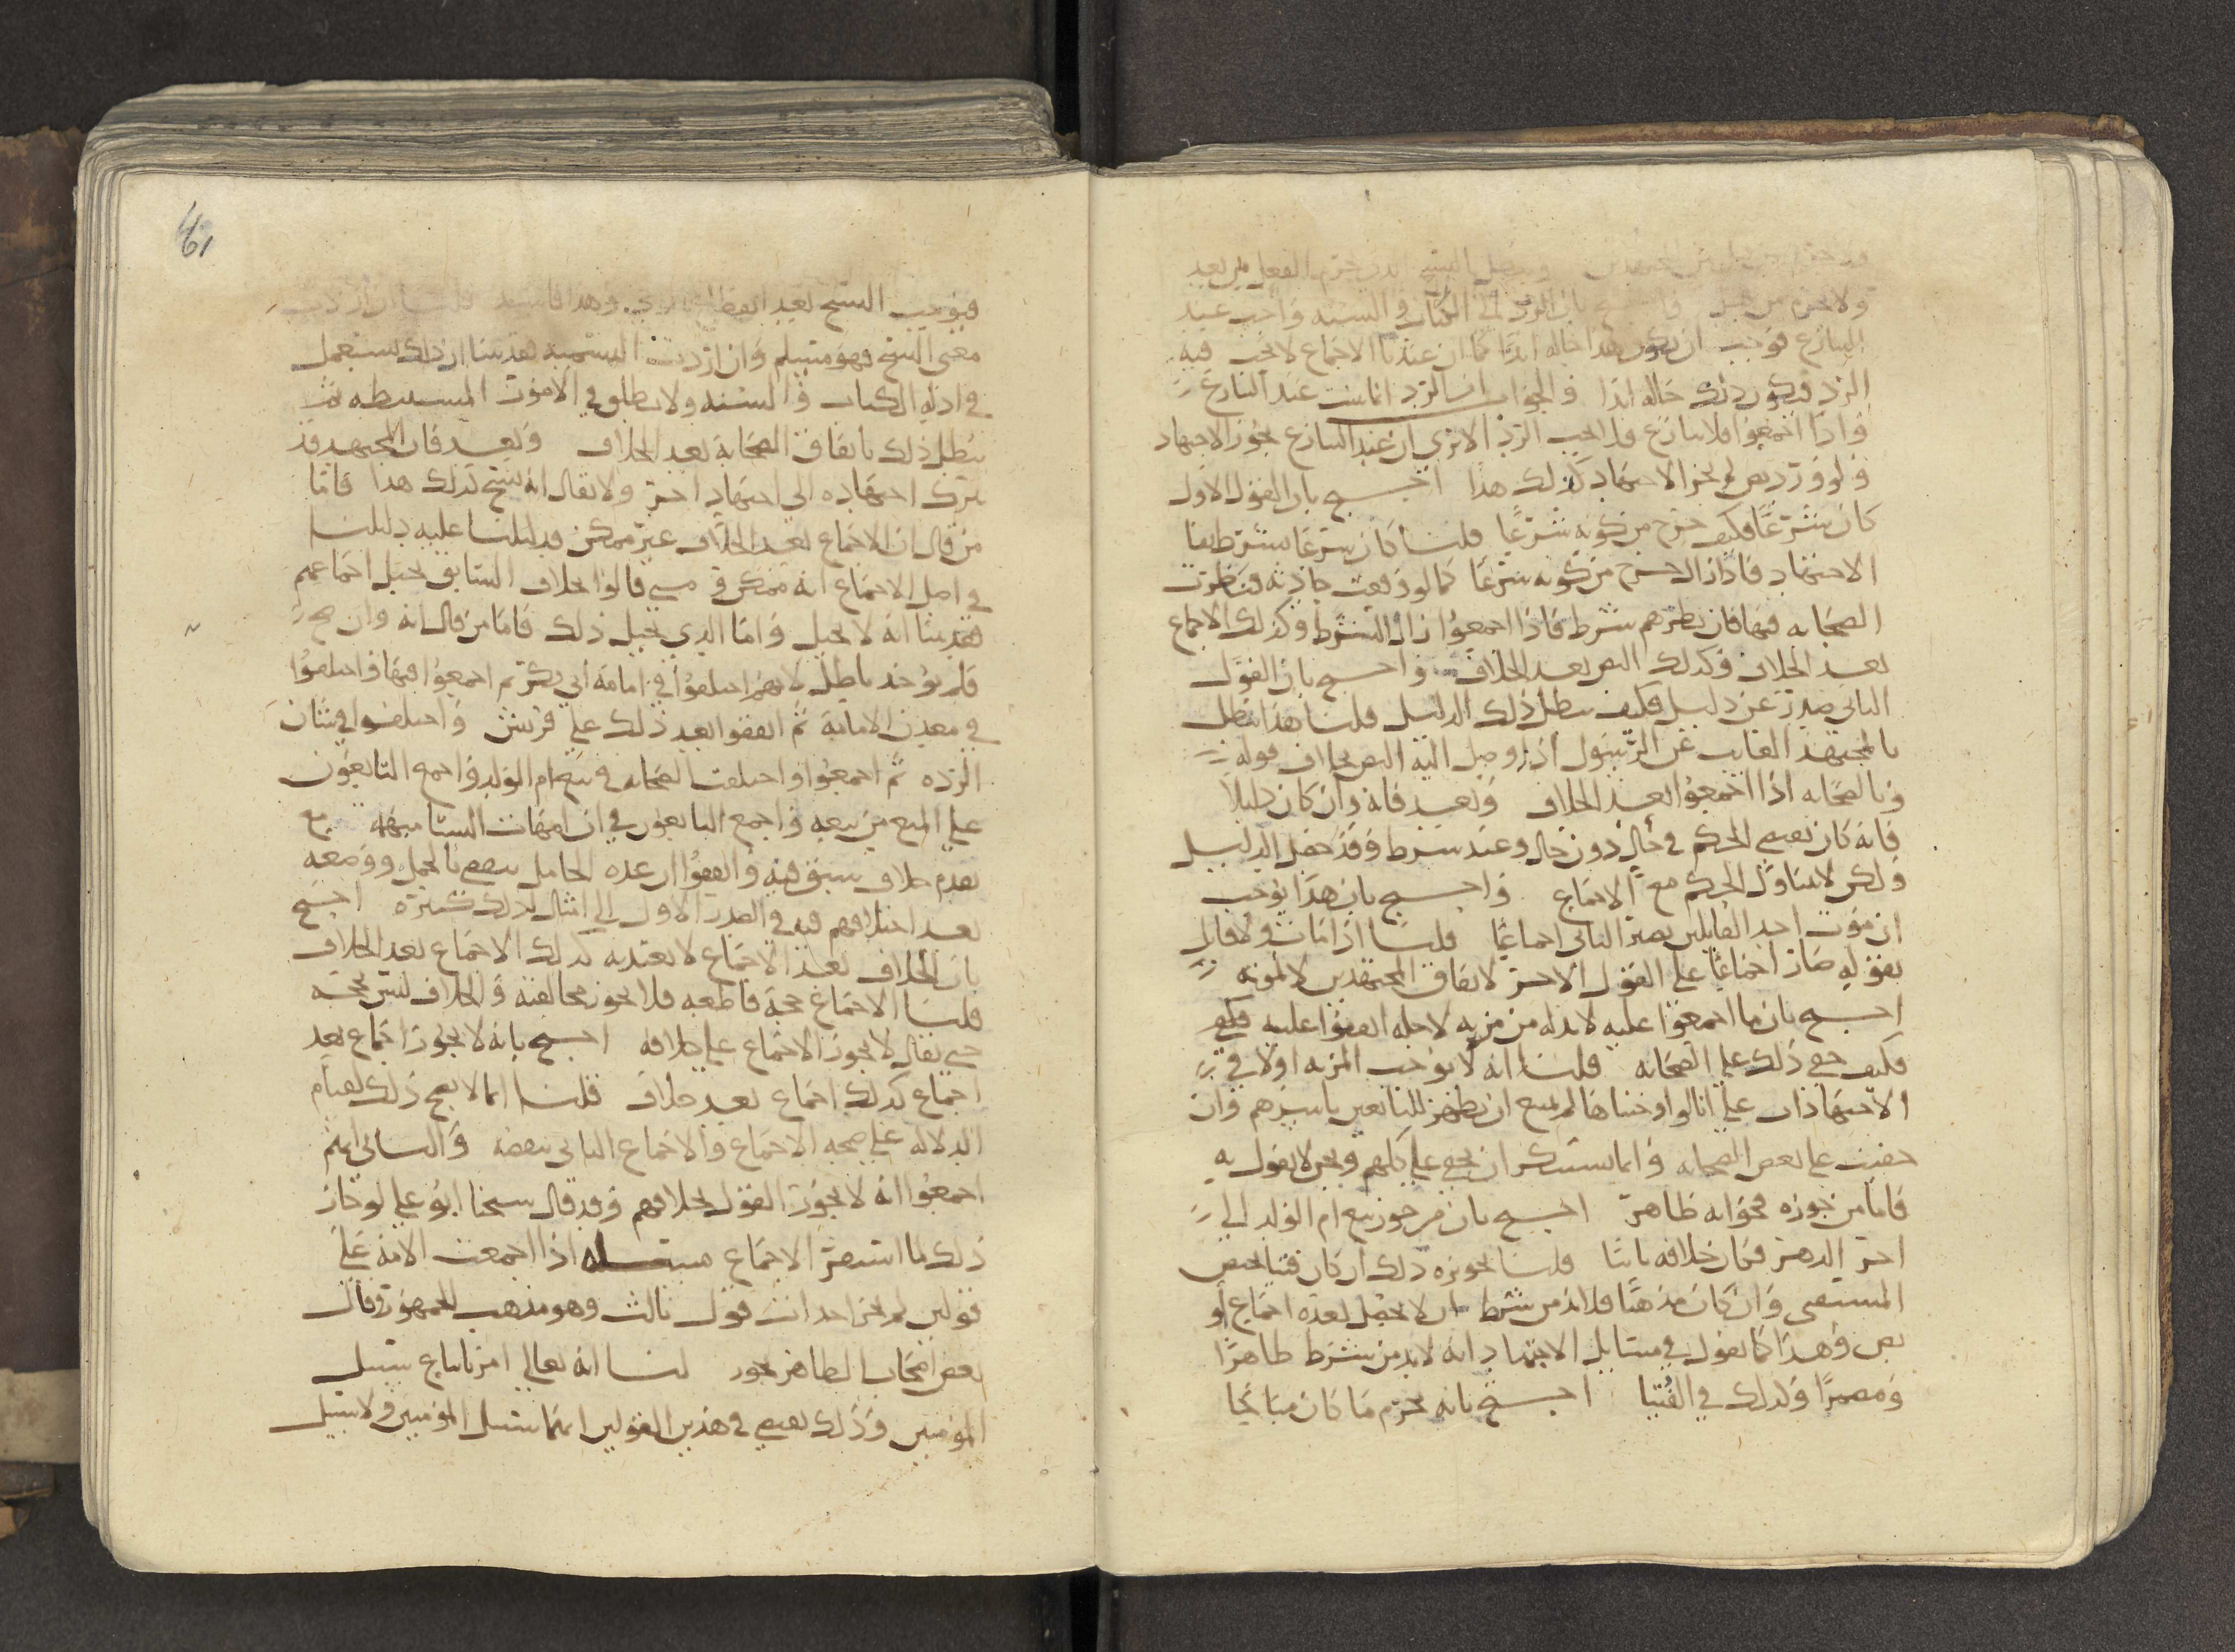 ولا يحرم من قبل بان الرد الى الكتاب والسنه واجب عند
التنازع فوجب ان يكون هذا حاله ابدا كما ان عندنا الاجماع لا يجب فيه
الرد فيكون ذلك حاله ابدا والجواب ان الرد انما يثبت عند التنازع
واذا اجمعوا فلا تنازع فلا يجب الرد الا ترى ان عند التنازع يجوز الاجتهاد
ولو ورد نص لم يجز الاجتهاد كذلك هذا احتج بان القول الاول
كان شرعًا فكيف خرج من كونه شرعًا قلنا كان شرعا بشرط بقا
الاجتهاد فاذا زال خرج من كونه شرعا كما لو وقعت حادثه فنظرت
الصحابه فيها فان نظرهم شرط فاذا اجمعوا زال الشرط وكذلك الاجماع
بعد الخلاف وكذلك النص بعد الخلاف واحتج بان القول
الثاني صدر عن دليل فكيف يبطل ذلك الدليل قلنا هذا يبطل
بالمجتهد الغايب عن الرسول اذا وصل اليه النص بخلاف قوله
وبالصحابه اذا اجمعوا بعد الخلاف وبعد فانه وان كان دليلا
فانه كان يقتضي الحكم في حال دون حال وعند شرط وقد حصل الدليل
ولكن لا يتناول الحكم مع الاجماع واحتج بان هذا يوجب
ان موت احد القايلين يصير الثاني اجماعًا قلنا اذا مات ولا قايل
بقوله صار اجماعًا على القول الاخر لاتفاق المجتهدين لا لموته
احتج بان ما اجمعوا عليه لا بد له من مزيه لاجله اتفقوا عليه
فكيف خفي ذلك على الصحابه قلنا انه لا يوجب المزيه اولا في
الاجتهادات على انا لو اوجبناها لم يمتنع ان يظهر للتابعين باسرهم وان
خفيت على بعض الصحابه وانما يستنكر ان يخفى على كلهم ونحن لا نقول به
فاما من جوزه فجوابه ظاهر احتج بان من جوز بيع ام الولد الى
اخر الدهر فكان خلافه باتا قلنا تجويزه ذلك ان كان فتيا يخص
المستفتي وان كان مذهبًا فلا بد من شرط ان لا يحصل بعده اجماع أو
نص وهذا كما نقول في مسايل الاجتهاد انه لا بد من شرط ظاهرًا
ومضمرًا وكذلك في الفُتيا احتج بانه يحرم ما كان مباحًا
61
معنى النسخ فهو مسلم وان اردت التسميه هذا ان ذلك يستعمل
في ادلة الكتاب والسنه ولا يطلق في الامور المستنبطه ثم
يبطل ذلك باتفاق الصحابة بعد الخلاف وبعد فان المجتهد قد
يترك اجتهاده الى اجتهاد اخر ولا يقال انه نسخ كذلك هذا فاما
من قال ان الاجماع بعد الخلاف غير ممكن فدليلنا عليه دليلنا
في اصل الاجماع انه ممكن ومتى قالوا الخلاف السابق يحيل اجماعهم
انه لا يحيل وما الذي يحيل ذلك فاما من قال انه وان صح
فلم يوجد باطل لانهم اختلفوا في امامة أبي بكر ثم اجمعوا فيها واختلفوا
في معدن الامامة ثم اتفقوا بعد ذلك على قريش واختلفوا في شان
الردة ثم اجمعوا واختلفت الصحابه في بيع ام الولد واجمع التابعون
على المنع من بيعه واجمع التابعون في ان امهات النسا مبهمة مع
تقدم خلاف سبق فيه واتفقوا ان عده الحامل تنقضي بالحمل ووضعه
بعد اختلافهم فيه في الصدر الاول الى امثال لذلك كثيرة احتج
بان الخلاف بعد الاجماع لا يعتد به كذلك الاجماع بعد الخلاف
قلنا الاجماع حجة قاطعه فلا يجوز مخالفته والخلاف ليس بحجه
حتى يقال لا يجوز الاجماع على خلافه احتج بانه لا يجوز اجماع بعد
اجماع كذلك اجماع بعد خلاف قلنا انما لا يصح ذلك لقيام
الدلاله على صحه الاجماع والاجماع الثاني ينقضه والثاني انهم
اجمعوا انه لا يجوز القول بخلافهم وقد قال شيخنا ابو علي لو جاز
ذلك ما استقر الاجماع مسئله اذا اجمعت الامة على
قولين لم يجز احداث قول ثالث وهو مذهب الجمهور وقال
بعض اصحاب الظاهر يجوز لنا انه تعالى امر باتباع سبيل
المؤمنين وذلك يقتضي في هذين القولين انهما سبيل المؤمنين ولا سبيل